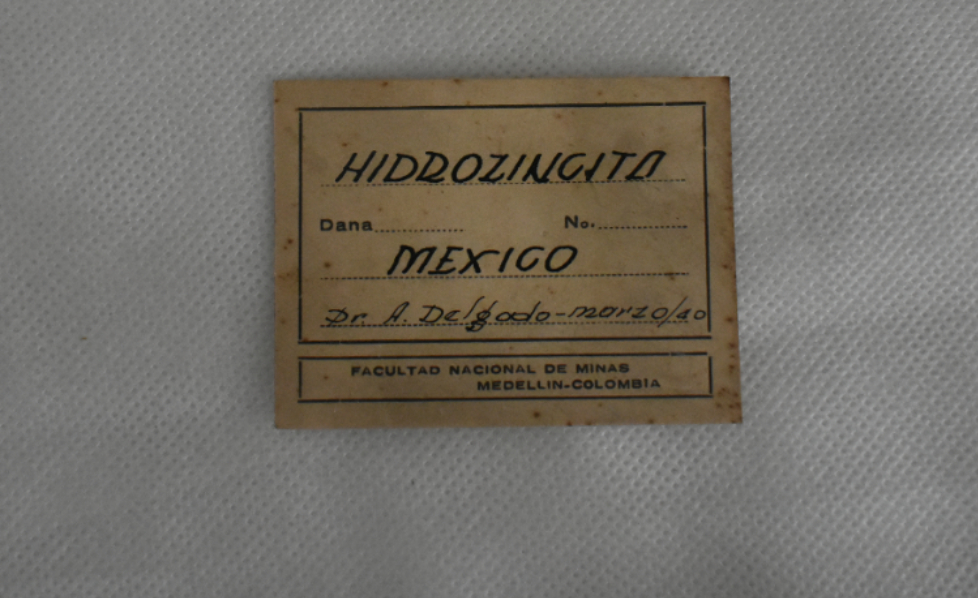 HIDROZINCITA
Dana No.
MEXICO
Dr. A. Delgado-marzo/40
FACULTAD NACIONAL DE MINAS
MEDELLIN-COLOMBIA